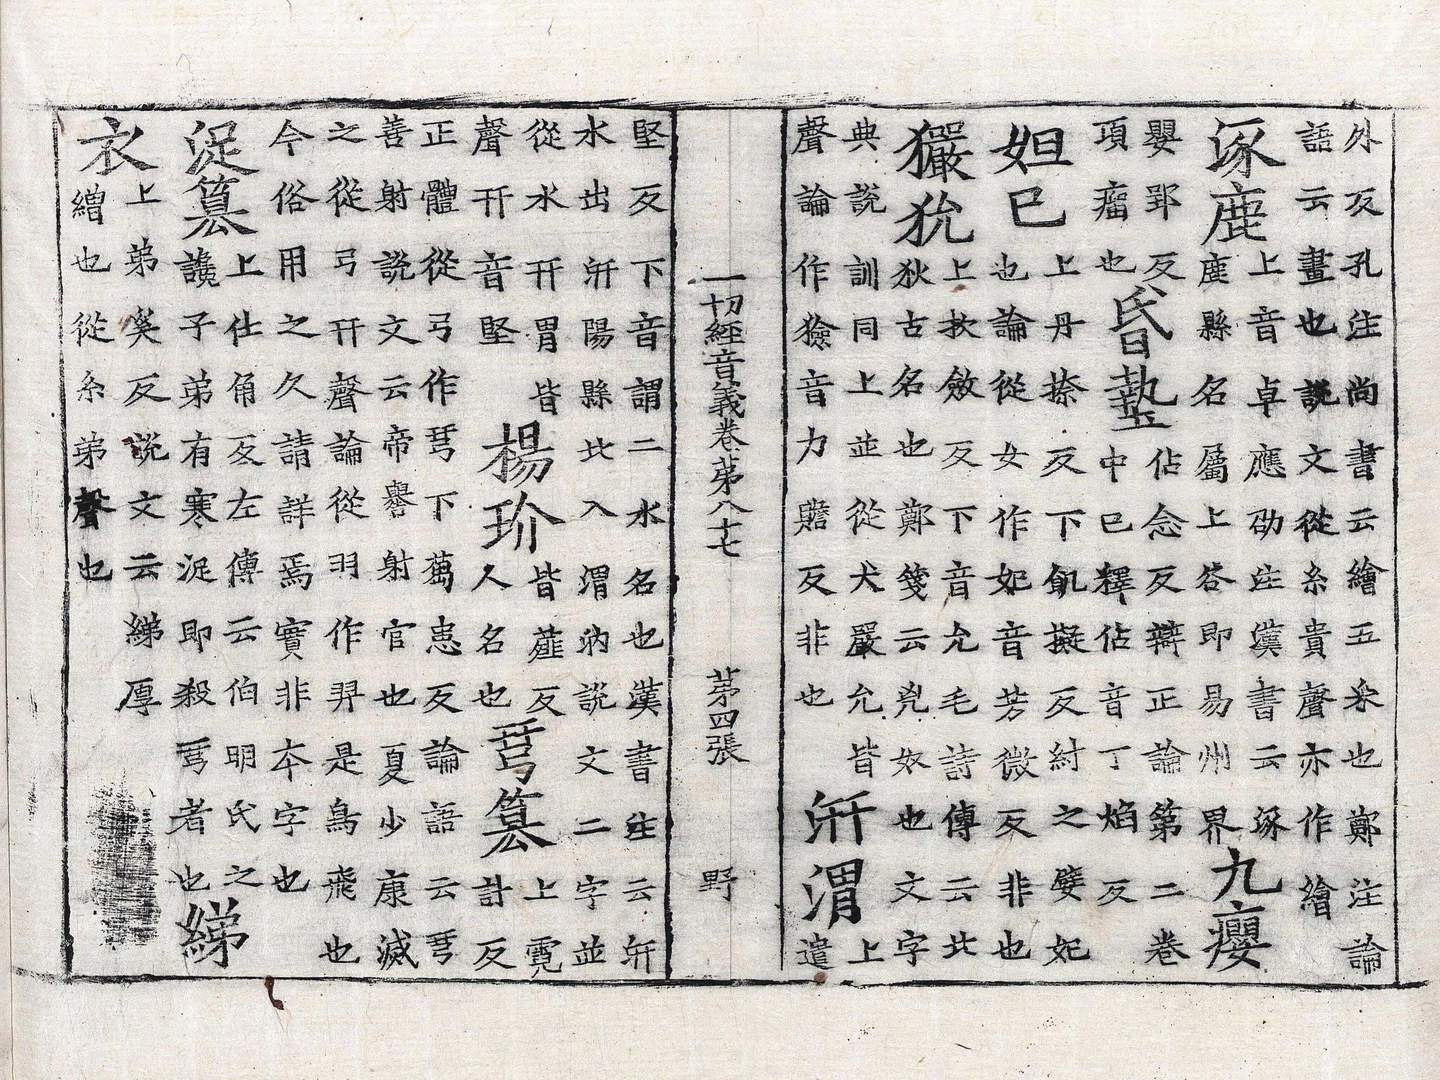 外反孔注尚書云繪五采也鄭注論
語云畫也說文從糸貴聲亦作繪
涿鹿
上音卓應劭注漢書云涿
鹿縣名屬上谷即易州界
九癭
嬰郢反
項瘤也
昏墊
佔念反辯正論第二卷
中已釋佔音丁焰反
妲己
上丹捺反下飢擬反紂之嬖妃
也論從女作妃音芳微反非也
玁狁
上杴斂反下音允毛詩傳云北
狄古名也鄭箋云兇奴也文字
典說訓同上並從犬嚴允皆
聲論作獫音力贍反非也
汧渭
上
遣
一切經音義卷第八十七 第四張 野
堅反下音謂二水名也漢書注云汧
水出汧陽縣北入渭汭說文二字並
從水幵胃皆
聲幵音堅
楊玠
皆薤反
人名也
𢏗篡
上霓
計反
正體從弓作𢏗下蔿惠反論語云𢏗
善射說文云帝嚳射官也夏少康滅
之從弓幵聲論從羽作羿是鳥飛也
今俗用之久請詳焉實非本字也
浞篡
上仕角反左傳云伯明氏之
讒子弟有寒浞即殺𢏗者也
綈衣
上弟奚反說文云綈厚
繒也從糸弟聲也